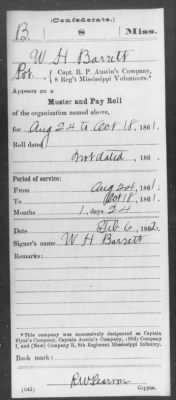 (Confederate.)
B. 8 Miss.
W H Barrett
Pvt., { Capt. R. P. Austin's Company,
8 Reg't Mississippi Volunteers.*
Appears on a
Muster and Pay Roll
of the organization named above,
for Aug 24 to Oct 18, 1861.
Roll dated
Not dated, 186 .
Period of service:
From Aug 24, 1861.
To Oct 18, 1861.
Months 1, days 24
Date Feb 6, 1862
Signer's name W H Barrett
Remarks:
*This company was successively designated as Captain
Flynt's Company, Captain Austin's Company, (Old) Company
I, and (New) Company B, 8th Regiment Mississippi Infantry.
Book mark:
(642) Copyist.